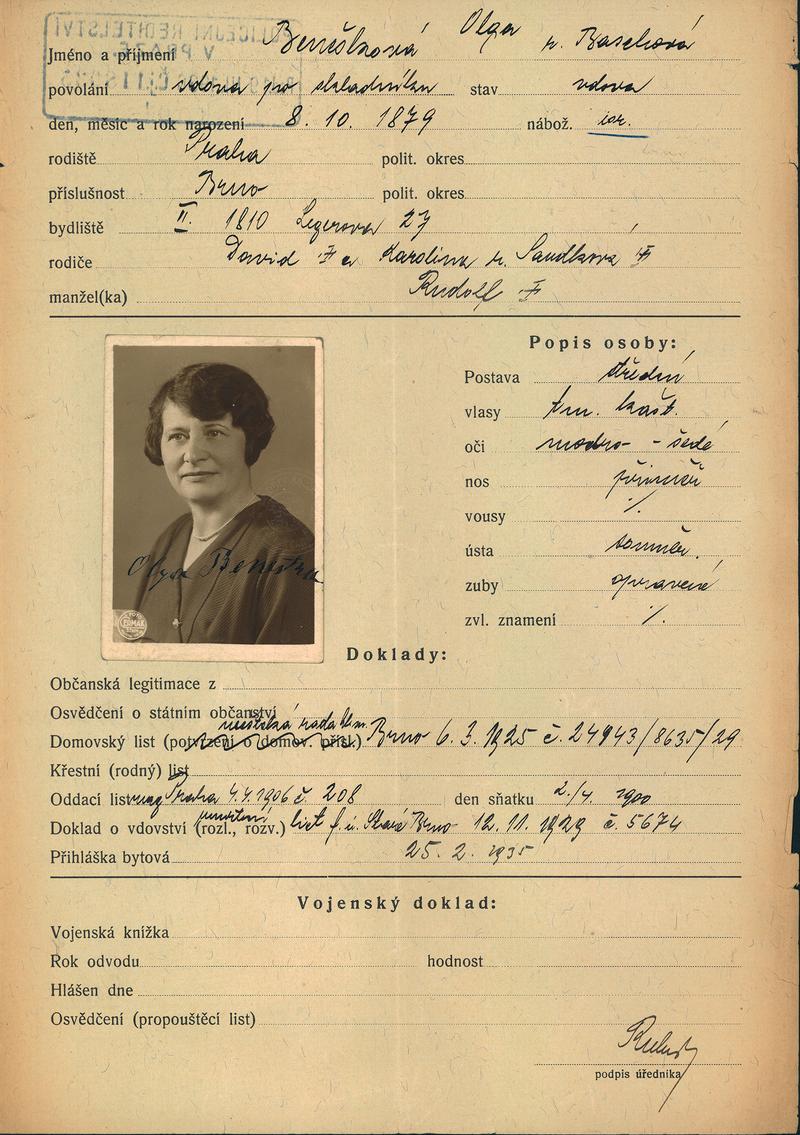 POLICEJNÍ ŘEDITELSTVÍ
V PRAZE
Jméno a příjmení Benešková Olga r. Baschová
povolání vdova po skladníku stav vdova
den, měsíc a rok narození 8. 10. 1879 nábož. isr.
rodiště Praha polit. okres
příslušnost Brno polit. okres
bydliště II. 1810 Legerova 27
rodiče David a Karolina r.
manžel(ka) Rudolf
Popis osoby:
Postava střední
vlasy tm. kašt.
oči modro- - šedé
nos přiměř
vousy /.
ústa souměr.
zuby opravené
zvl. znamení /.
Olga
Doklady:
Občanská legitimace z
Osvědčení o státním občanství
městská rada hl. m.
Domovský list (potvrzení o domov. přísl.) Brno 6. 3. 1925 č. 24943/8635/29
Křestní (rodný) list
Oddací list Praha 4.4.1906 č. 208 den sňatku 2./4. 1900
úmrtní
Doklad o vdovství (rozl., rozv.) list f. ú. Stará Brno 12. 11. 1929 č. 5674
Přihláška bytová 25. 2. 1935
Vojenský doklad:
Vojenská knížka
Rok odvodu hodnost
Hlášen dne
Osvědčení (propouštěcí list)
podpis úředníka